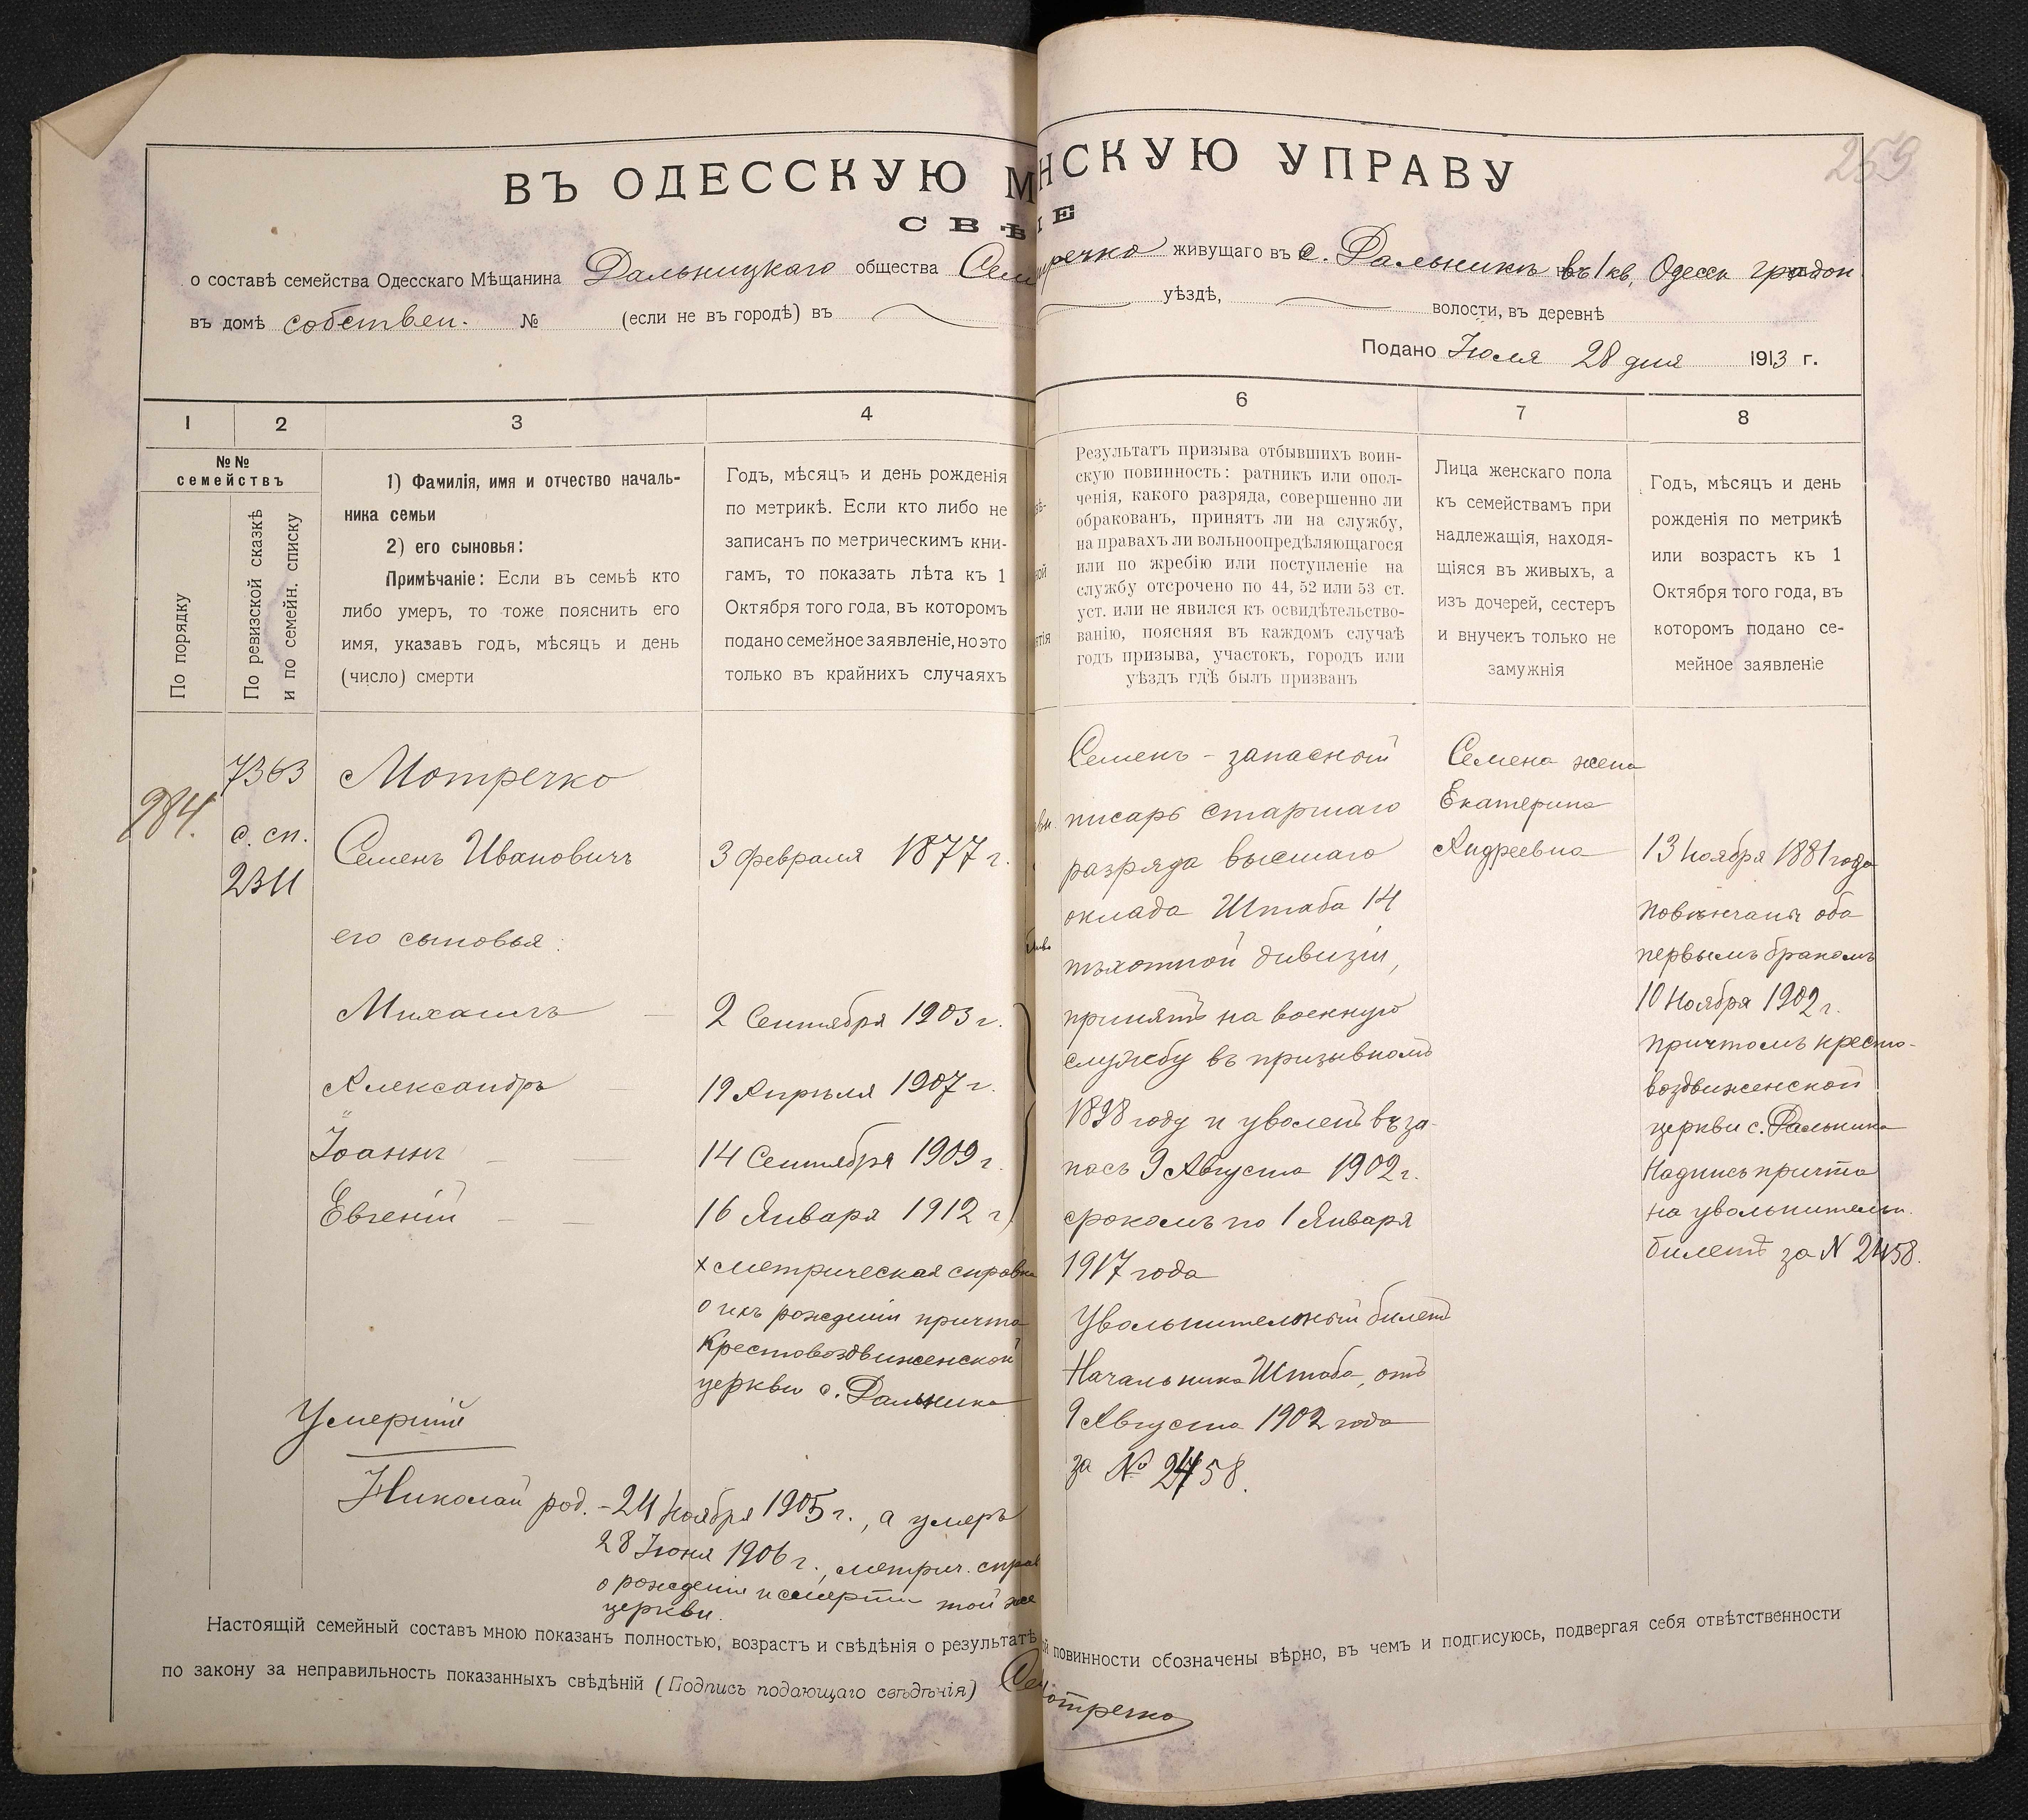 259
ВЪ ОДЕССКУЮ М НСКУЮ УПРАВУ
СВѢ IЕ
о составѣ семейства Одесскаго Мѣщанина Дальницкаго общества Сем тречко живущаго въ с. Дальникъ въ 1 кв. Одесск градон
въ домѣ собствен. № (если не въ городѣ) въ уѣздѣ, волости, въ деревнѣ
Подано Іюля 28 дня 1913 г.
1 2 3 4 6 7 8
№№ семействъ
По порядку
По ревизской сказкѣ
и по семейн. списку
1) Фамилія, имя и отчество началь-
ника семьи
2) его сыновья:
Примѣчаніе: Если въ семьѣ кто
либо умеръ, то тоже пояснить его
имя, указавъ годъ, мѣсяцъ и день
(число) смерти
Годъ, мѣсяцъ и день рожденія
по метрикѣ. Если кто либо не
записанъ по метрическимъ кни-
гамъ, то показать лѣта къ 1
Октября того года, въ которомъ
подано семейное заявленіе, но это
только въ крайнихъ случаяхъ
Результатъ призыва отбывшихъ воин-
скую повинность: ратникъ или опол-
ченія, какого разряда, совершенно ли
обракованъ, принятъ ли на службу,
на правахъ ли вольноопредѣляющагося
или по жребію или поступленіе на
службу отсрочено по 44, 52 или 53 ст.
уст. или не явился къ освидѣтельство-
ванію, поясняя въ каждомъ случаѣ
годъ призыва, участокъ, городъ или
уѣздъ гдѣ былъ призванъ
Лица женскаго пола
къ семействамъ при
надлежащія, находя-
щіяся въ живыхъ, а
изъ дочерей, сестеръ
и внучекъ только не
замужнія
Годъ, мѣсяцъ и день
рожденія по метрикѣ
или возрастъ къ 1
Октября того года, въ
которомъ подано се-
мейное заявленіе
284.
7363
с. сп.
2311
Мотречко
Семенъ Ивановичъ
его сыновья:
Михаилъ
Александръ
Іоаннъ
Евгеній
3 февраля 1877 г.
2 Сентября 1903 г.
19 Апрѣля 1907 г.
14 Сентября 1909 г.
16 Января 1912 г.
х метрическая справка
о ихъ рожденіи причта
Крестовоздвиженской
церкви с. Дальника
Умершіе
Николай род. - 24 Ноября 1905 г., а умеръ
28 Іюня 1906 г., метрич. справ
о рожденіи и смерти той же
церкви.
Семенъ - запасной
писарь старшаго
разряда высшаго
оклада Штаба 14
пѣхотной дивизіи,
принятъ на военную
службу въ призывномъ
1898 году и уволенъ въ за-
пасъ 9 Августа 1902 г.
срокомъ по 1 Января
1917 года
Увольнительный билетъ
Начальника Штаба, отъ
9 Августа 1902 года
за № 2458.
Семена жена
Екатерина
Андреевна
13 Ноября 1881 года
повѣнчаны оба
первымъ бракомъ
10 Ноября 1902 г.
причтомъ кресто-
воздвиженской
церкви с. Дальника
Надпись причта
на увольнительн.
билетѣ за N 2458.
Настоящій семейный составъ мною показанъ полностью, возрастъ и свѣдѣнія о результатѣ й повинности обозначены вѣрно, въ чемъ и подписуюсь, подвергая себя отвѣтственности
по закону за неправильность показанныхъ свѣдѣній (Подпись подающаго свѣдѣнія) Сем отречко